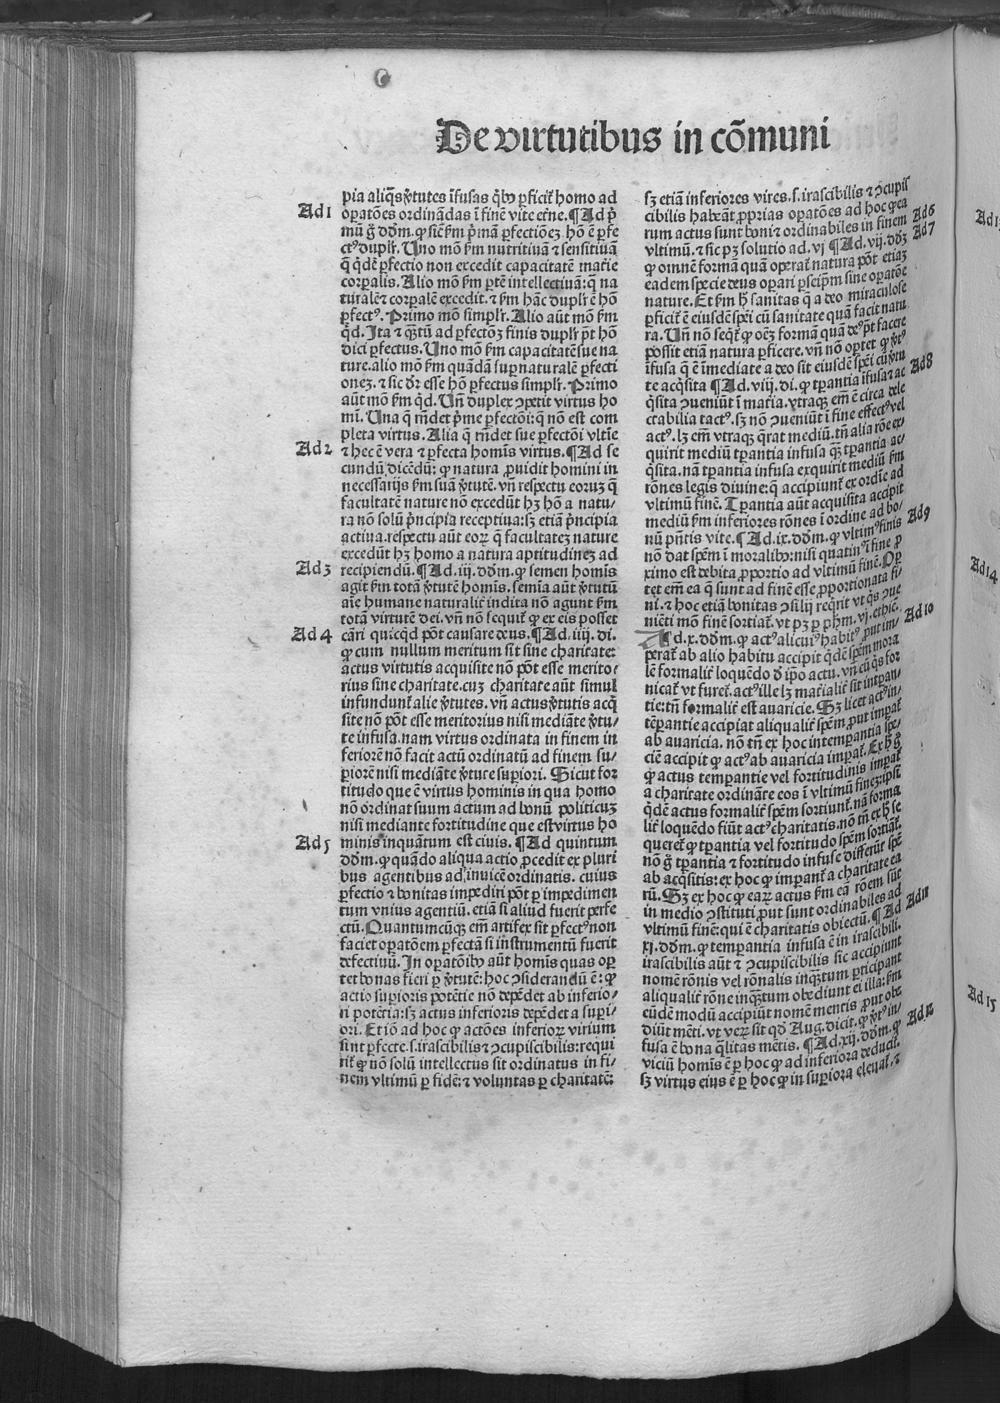 De virtutibus in cōmuni
pia aliq̄s v̓tutes īfusas q̄bꝰ ꝑficit̄ homo ad
Ad 1
oꝑatōes ordinādas ī finē vite et̓ne. ¶Ad p̄
mū g̊ dōm. ꝙ sic̄ ẜm p̓mā ꝑfectiōeꝫ. hō ē ꝑfe
ctꝰ duplr̄. Uno mō ẜm nutritiuā ⁊ sensitiuā
q̄ qd̓ē ꝑfectio non excedit capacitatē matie
corꝑalis. Alio mō ẜm ꝑtē intellectiuā: q̄ na
turalē ⁊ corꝑalē excedit. ⁊ ẜm hāc duplr̄ ē hō
ꝑfectꝰ. Primo mō simplr̄. Alio aūt mō ẜm
qd̓. Ita ⁊ qꝫtū ad ꝑfectōꝫ finis duplr̄ pt̄ hō
dici ꝑfectus. Uno mō ẜm capacitatē sue na
ture. alio mō ẜm quādā suꝑnaturalē ꝑfecti
oneꝫ. ⁊ sic dr̄ esse hō ꝑfectus simplr̄. Primo
aūt mō ẜm qd̓. Uñ duplex ↄpetit virtus ho
mī. Una q̄ rn̄det p̓me ꝑfectōi: q̄ nō est com
pleta virtus. Alia q̄ rn̄det sue ꝑfectōi vltīe
Ad 2
⁊ hec ē vera ⁊ ꝑfecta homīs virtus. ¶Ad se
cundū dicēdū: ꝙ natura ꝓuidit homini in
necessarijs ẜm suā v̓tutē. vñ respectu eoruꝫ q̄
facultatē nature nō excedūt hꝫ hō a natu/
ra nō solū p̓ncipia receptiua: sꝫ etiā p̓ncipia
actiua. respectu aūt eoꝝ q̄ facultateꝫ nature
excedūt hꝫ homo a natura aptitudineꝫ ad
Ad 3
recipiendū. ¶Ad. iij. dōm. ꝙ semen homīs
agit ẜm totā v̓tutē homīs. semīa aūt v̓tutū
aīe humane naturalit̄ indita nō agunt ẜm
totā virtutē dei. vñ nō sequit̄ ꝙ ex eis posset
Ad 4
cāri quicqd̓ pōt causare deus. ¶Ad. iiij. di.
ꝙ cum nullum meritum sit sine charitate:
actus virtutis acquisite nō pōt esse merito/
rius sine charitate. cuꝫ charitate aūt simul
infundunt̄ alie v̓tutes. vñ actus v̓tutis acq̄
site nō pōt esse meritorius nisi mediāte v̓tu/
te infusa. nam virtus ordinata in finem in
feriorē nō facit actū ordinatū ad finem su/
ꝑiorē nisi mediāte v̓tute suꝑiori. Sicut for
titudo que ē virtus hominis in qua homo
nō ordinat suum actum ad bonū politicuꝫ
nisi mediante fortitudine que est virtus ho
Ad 5
minis inquātum est ciuis. ¶Ad quintum
dōm. ꝙ quādo aliqua actio ꝓcedit ex pluri
bus agentibus ad inuicē ordinatis. cuius
ꝑfectio ⁊ bonitas impediri pōt ꝑ impedimen
tum vnius agentiū. etiā si aliud fuerit perfe
ctū. Quantumcūqꝫ em̄ artifex sit ꝑfectꝰ non
faciet oꝑatōem ꝑfectā si instrumentū fuerit
defectiuū. In oꝑatōibꝰ aūt homīs quas oꝑ
tet bonas fieri ꝑ v̓tutē: hoc ↄsiderandū ē: ꝙ
actio suꝑioris potētie nō depēdet ab inferio/
ri potētia: sꝫ actus inferioris depēdet a suꝑi/
ori. Et iō ad hoc ꝙ actōes inferioꝝ virium
sint ꝑfecte. s. irascibilis ⁊ ↄcupiscibilis: requi
rit̄ ꝙ nō solū intellectus sit ordinatus in fi/
nem vltimū ꝑ fidē: ⁊ voluntas ꝑ charitatē:
sꝫ etiā inferiores vires. s. irascibilis ⁊ ↄcupis
cibilis habeāt ꝓprias oꝑatōes ad hoc ꝙ ea
Ad 6
rum actus sunt boni ⁊ ordinabiles in finem
Ad 7
vltimū. ⁊ sic pꝫ solutio ad. vj ¶Ad. vij. dōꝫ
ꝙ omnē formā quā oꝑat̄ natura pōt etiaꝫ
eadem specie deus oꝑari ꝑ seipm̄ sine oꝑatōe
nature. Et ẜm hͦ sanitas q̄ a deo miraculose
ꝑficit̄ ē eiusdē sp̄ei cū sanitate quā facit natu
ra. Uñ nō seq̄t̄ ꝙ oēꝫ formā quā deꝰ pt̄ facere
possit etiā natura ꝑficere. vñ nō oꝑtet ꝙ v̓tꝰ
īfusa q̄ ē īmediate a deo sit eiusdē sp̄ei cū v̓tu
Ad 8
te acq̄sita ¶Ad. viij. di. ꝙ tꝑantia īfusa ⁊ ac
q̄sita ↄueniūt ī matia. vtraqꝫ em̄ ē circa dele
ctabilia tactꝰ. sꝫ nō ↄueniūt ī fine effectꝰ vel
actꝰ. lꝫ em̄ vtraqꝫ q̄rat mediū. tn̄ alia rōe ex/
quirit mediū tꝑantia infusa qꝫ tꝑantia ac/
q̄sita. nā tꝑantia infusa exquirit mediū ẜm
rōnes legis diuine: q̄ accipiunt̄ ex ordīe ad
vltimū finē. Tꝑantia aūt acquisita accipit
mediū ẜm inferiores rōnes ī ordine ad bo/
Ad 9
nū pn̄tis vite. ¶Ad. ix. dōm. ꝙ vltimꝰ finis
nō dat spēm ī moralibꝰ: nisi quatinꝰ ī fine ꝓ
ximo est debita ꝓportio ad vltimū finē. Oꝑ
tet em̄ ea q̄ sunt ad finē esse ꝓportionata fi/
ni. ⁊ hoc etiā bonitas ↄsilij req̄rit vt q̄s ↄue
niēti mō finē sortiat̄. vt pꝫ ꝑ pħm. vj. ethic̄.
Ad 10
Ad. x. dōm. ꝙ actꝰ alicuiꝰ habitꝰ ꝓut im/
perat̄ ab alio habitu accipit qd̓ē spēm mora
lē formalit̄ loquēdo d̓ ip̄o actu. vñ cū q̄s for
nicat̄ vt furet̄. actꝰ ille lꝫ mat̓ialit̄ sit intꝑan/
tie: tn̄ formalit̄ est auaricie. Sꝫ licet actꝰ in/
tēꝑantie accipiat aliqualit̄ spēm. ꝓut imꝑat̄
ab auaricia. nō tn̄ ex hoc intemꝑantia spe/
ciē accipit ꝙ actꝰ ab auaricia imꝑat̄. Ex hͦ g̊
ꝙ actus temꝑantie vel fortitudinis imꝑat̄
a charitate ordināte eos ī vltimū fineꝫ: ip̄i
qd̓ē actus formalit̄ spēm sortiunt̄. nā forma
lit̄ loquēdo fiūt actꝰ charitatis. nō tn̄ ex hͦ se
queret̄ ꝙ tꝑantia vel fortitudo spēm sortiāt̄.
nō g̊ tꝑantia ⁊ fortitudo infuse differūt spē
ab acq̄sitis: ex hoc ꝙ imꝑant̄ a charitate ea
rū. Sꝫ ex hoc ꝙ eaꝝ actus ẜm eā rōem sūt
Ad 11
in medio ↄstituti ꝓut sunt ordinabiles ad
vltimū finē: qui ē charitatis obiectū. ¶Ad
xj. dōm. ꝙ temꝑantia infusa ē in irascibili.
irascibilis aūt ⁊ ↄcupiscibilis sic accipiunt
nomē rōnis vel rōnalis inqꝫtum ꝑticipant
aliqualit̄ rōne inqꝫtum obediunt ei illa: ẜm
eūdē modū accipiūt nomē mentis ꝓut obe
Ad 12
diūt mēti. vt veꝝ sit qd̓ Aug. dicit. ꝙ v̓tꝰ in/
fusa ē bona q̄litas mētis. ¶Ad. xij. dōm. ꝙ
viciū homīs ē ꝑ hoc ꝙ ad inferiora deducit̄.
sꝫ virtus eius ē ꝑ hoc ꝙ in suꝑiora eleuat̄. ⁊
Ad 14
Ad 15